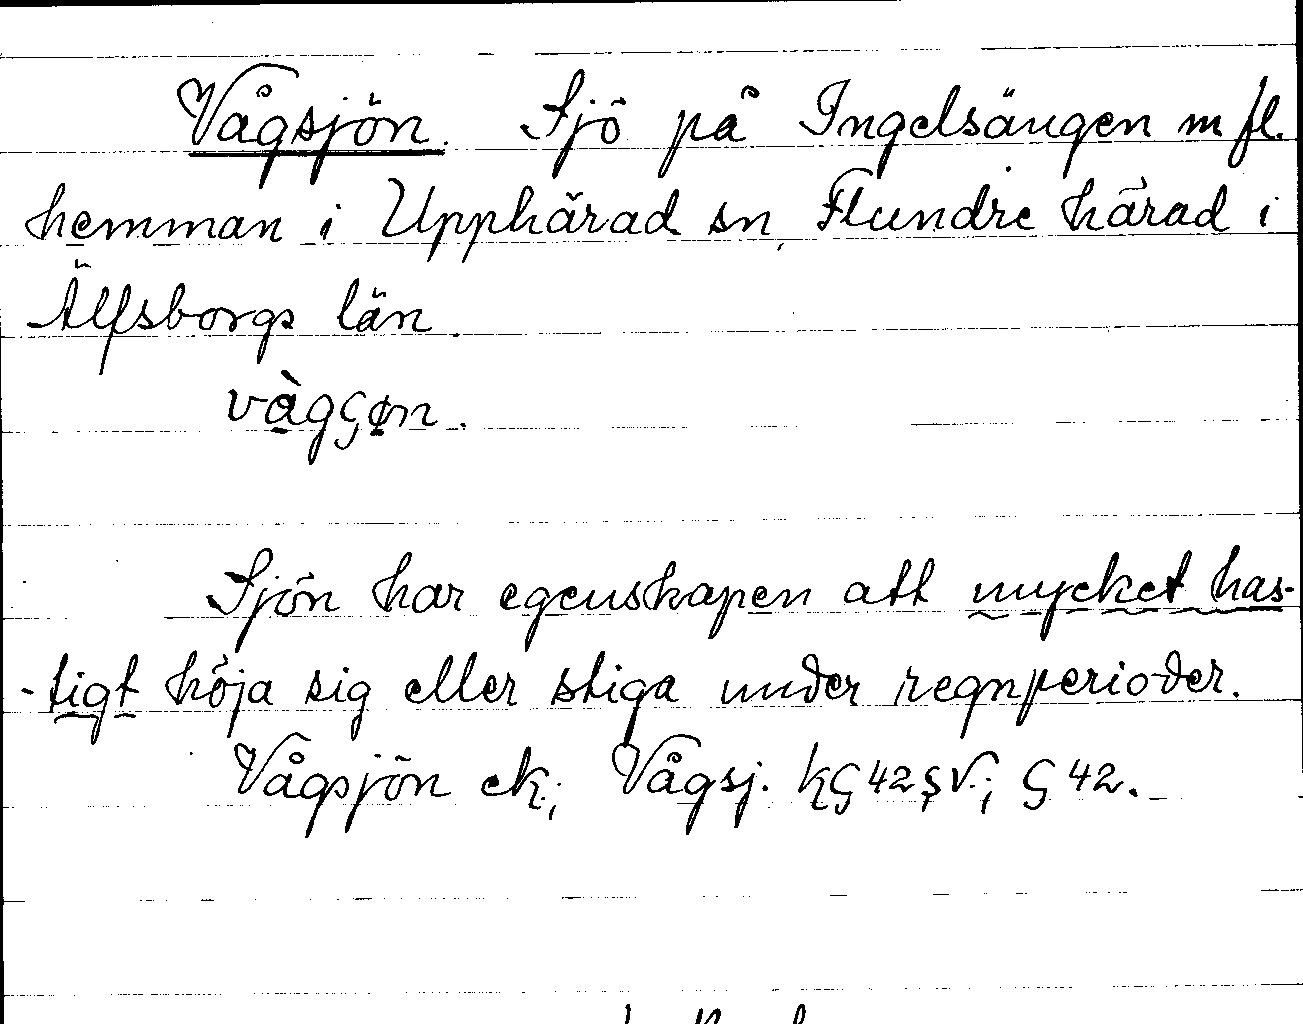 Vågsjön. Sjö på Ingelsängen m fl.
hemman i Upphärad sn, Flundre härad i
Älfsborgs län.
vàgʂøn.
Sjön har egenskapen att mycket has-
-tigt höja sig eller stiga under regnperioder.
Vågsjön ek.; Vågsj. kG 42 SV.; G 42.